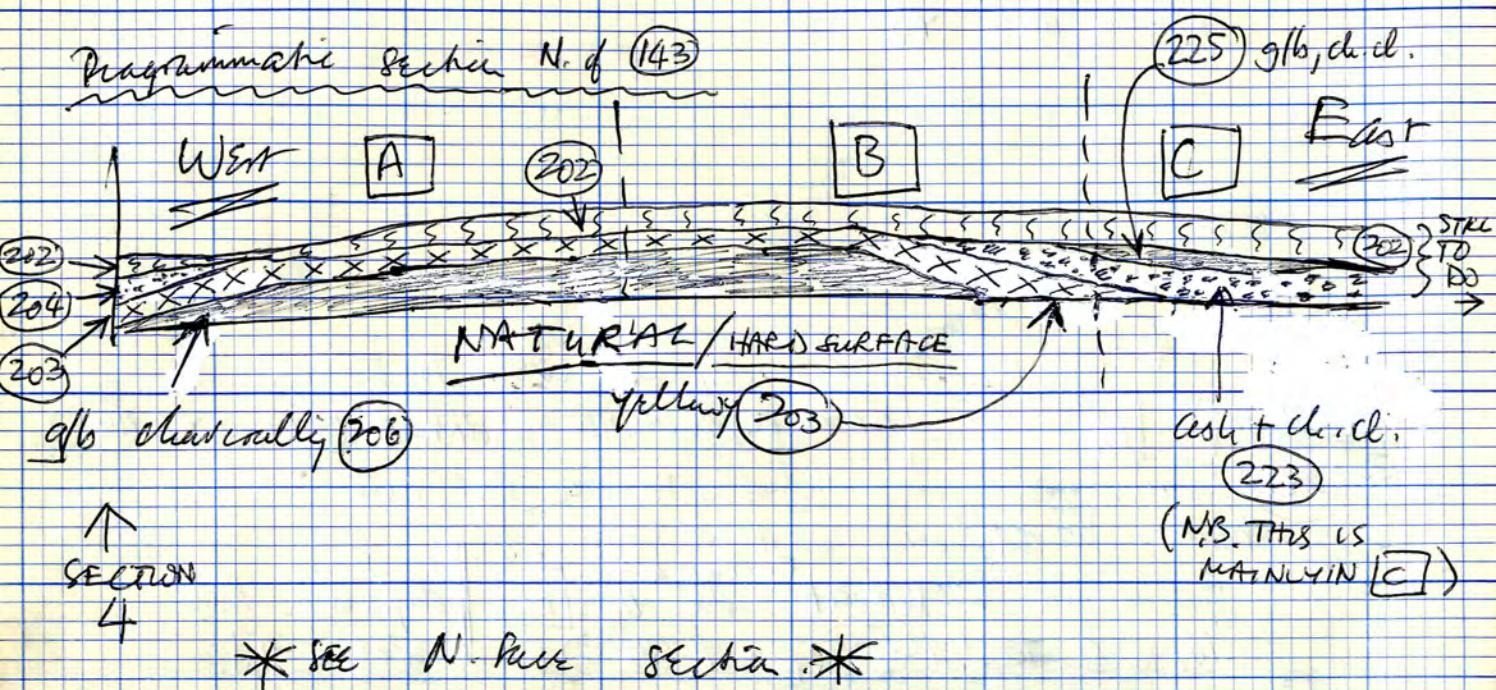 Diagrammatic Section N. of 143
225 g/b, ch. cl.
West A 202 B C East
202
204
203
202 STILL
TO
DO
NATURAL/HARD SURFACE
g/b charcoally 206
yellowy 203
ash + ch. cl.
223
(N.B. THIS IS
MAINLY IN C)
SECTION
4
* SEE N. Face Section. *